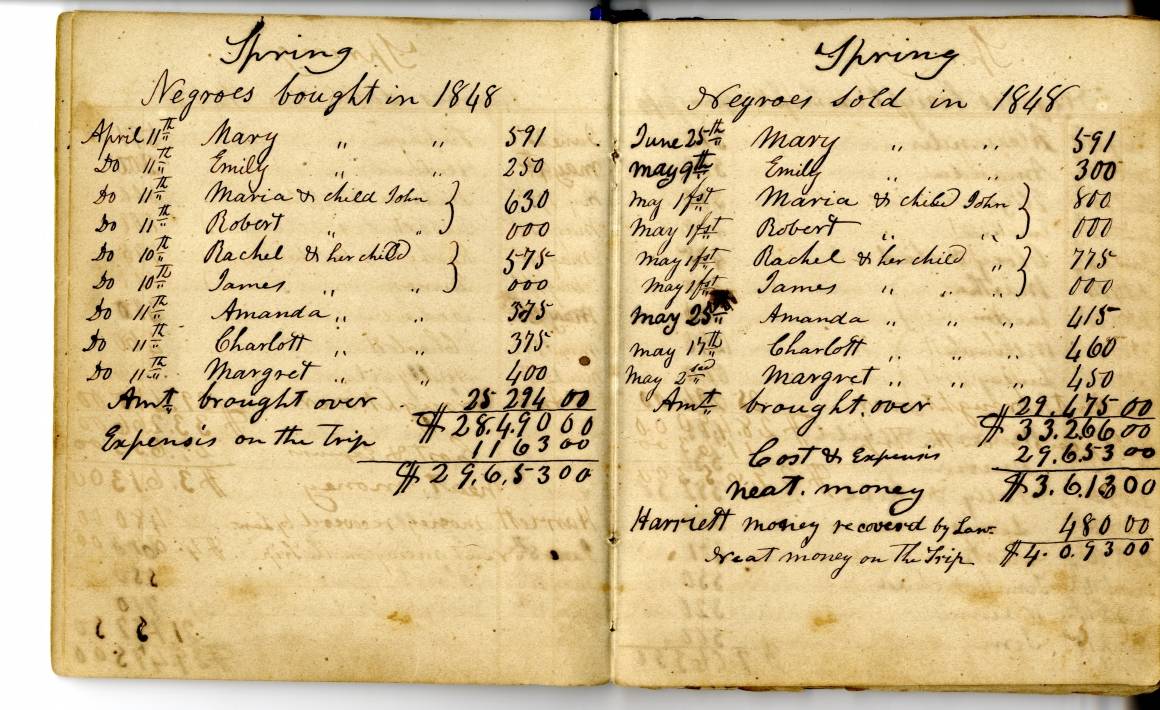 Spring
Negroes bought in 1848
April 11th Mary " " 591
Do 11th Emily " " 250
Do 11th Maria & child John } 630
Do 11th Robert " " 000
Do 10th Rachel & her child } 575
Do 10th James " " 000
Do 11th Amanda " " 375
Do 11th Charlott " " 375
Do 11th Margret " " 400
Amt brought over 25 294 00
$ 28.490 00
Expensis on the trip 1 163 00
$ 29.653 00
Spring
Negroes sold in 1848
June 25th Mary " " 591
may 9th Emily " " 300
may 1fst Maria & child John } 800
may 1fst Robert " " 000
may 1fst Rachel & her child " } 775
may 1fst James " " " 000
may 25th Amanda " " " 415
may 17th Charlott " " " 460
May 2sed Margret " " " 450
Amt brought over $ 29.475 00
$ 33.266 00
Cost & Expensis 29.653 00
neat. money $3.613 00
Harriett money recoverd by Law. 480 00
Neat money on the Trip $4.093 00